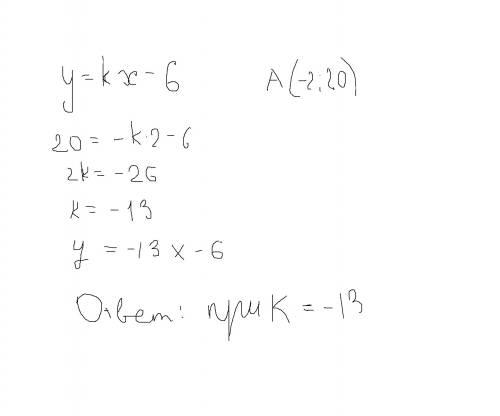 y = kx - 6 A(-2; 20)
20 = -k·2 - 6
2k = -26
k = -13
y = -13x - 6
Ответ: при k = -13